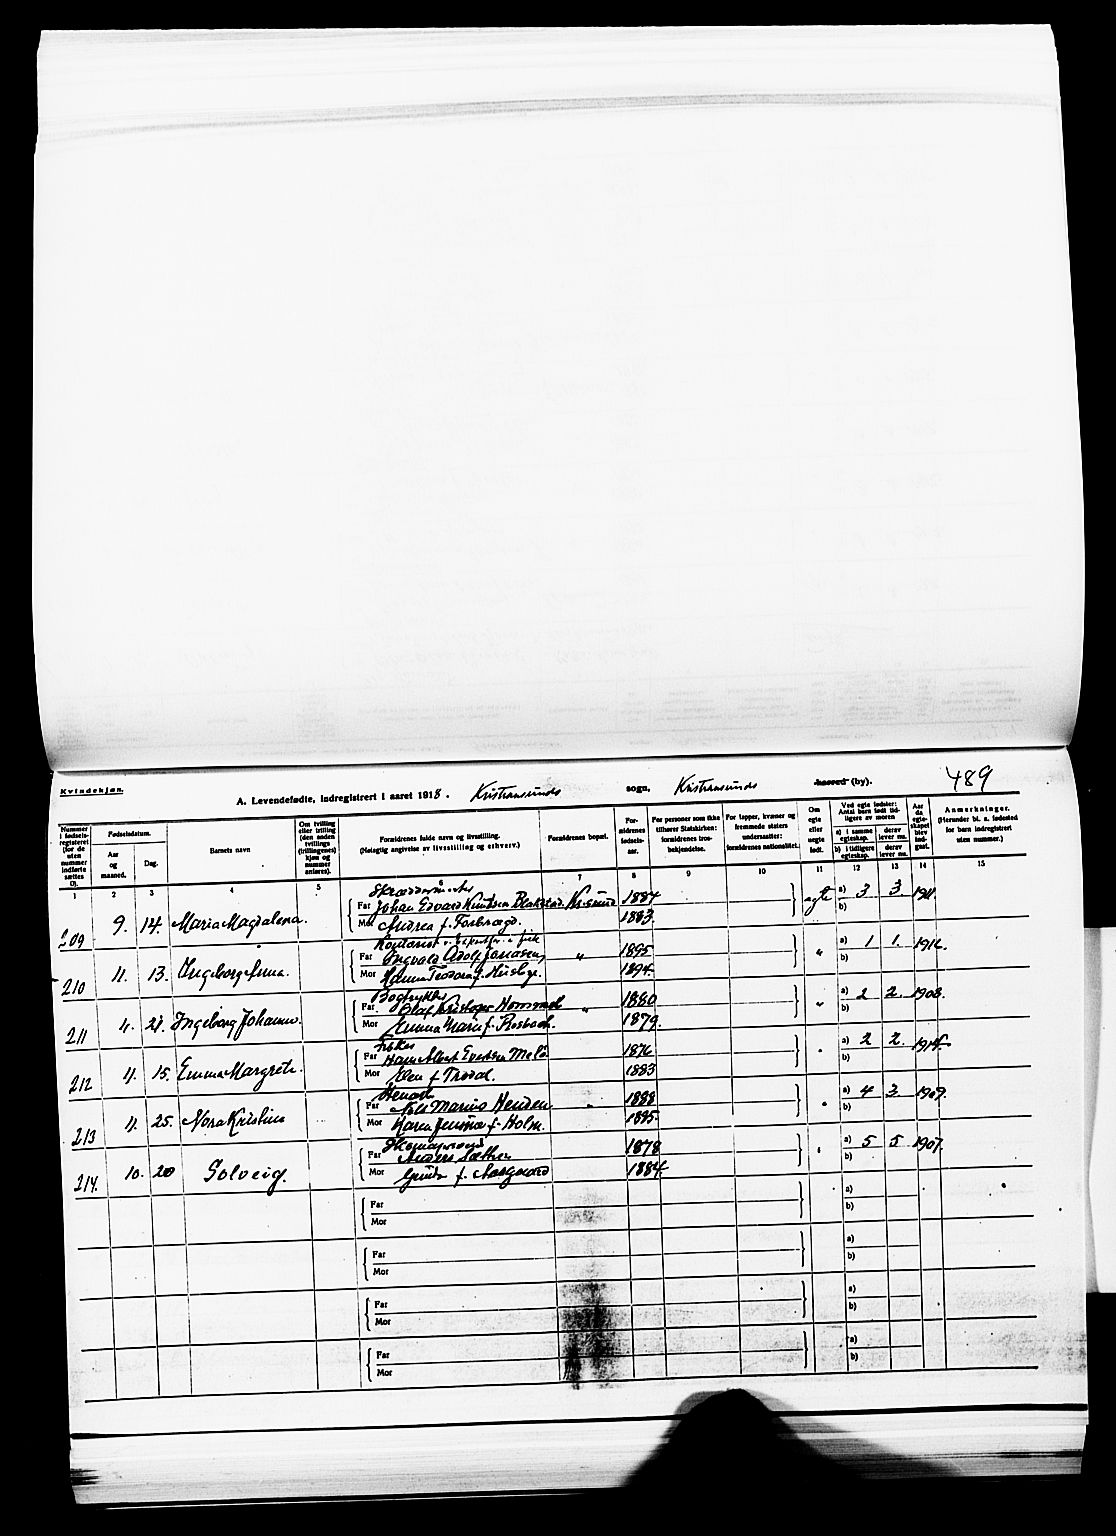 489
Kvindekjøn.
A. Levendefødte, indregistrert i aaret 1918. Kristiansunds sogn, Kristiansunds herred (by).
Nummer i fødselsregisteret (for de uten nummer indførte sættes 0).
Fødselsdatum.
Aar og maaned.
Dag.
Barnets navn
Om tvilling eller trilling (den anden tvillings (trillingenes) kjøn og nummer anføres).
Forældrenes fulde navn og livsstilling.
(Nøiagtig angivelse av livsstilling og erhverv.)
Forældrenes bopæl.
Forældrenes fødselsaar.
For personer som ikke tilhører Statskirken: forældrenes trosbekjendelse.
For lapper, kvæner og fremmede staters undersaatter: forældrenes nationalitet.
Om egte eller uegte født.
Ved egte fødsler: Antal barn født tidligere av moren
a) i samme egteskap.
derav lever nu.
b) i tidligere egteskap.
derav lever nu.
Aar da egteskapet blev indgaat.
Anmerkninger.
(Herunder bl. a. fødested for barn indregistrert uten nummer.)
1 2 3 4 5 6 7 8 9 10 11 12 13 14 15
Skræddermester
209 9. 14. Maria Magdalena. Far Johan Edvard Knudsen Blakstad. Kr.sund 1884 egte a) 3 3 1911.
Mor Andrea f. 1883. b)
Kontorist
210 11. 13. Ingeborg Anna. Far Ingvald Adolf Jonassen „ 1895 „ a) 1 1. 1916.
Mor Hanna Teodora f. Husby. 1894. b)
Bogtrykker
211 4. 21. Ingeborg Johanne. Far Olaf Kristofer „ 1880 „ a) 2 2. 1908.
Mor Emma Marie f. Rosbach. 1879. b)
Fisker
212 11. 15. Emma Margrete. Far Hans Albert Evertsen Melø 1876 „ a) 2 2. 1914.
Mor Elen f. 1883 b)
213 11. 25. Nora Kristine Far Nils Marius Henden „ 1888 „ a) 4 3. 1909.
Mor Maren Jensine f. Holm. 1895. b)
Skomagersvend
214. 10. 20 Solveig. Far Anders Sæther 1878 „ a) 5 5 1907.
Mor Gunda f. Aasgaard 1884. b)
Far a)
Mor b)
Far a)
Mor b)
Far a)
Mor b)
Far a)
Mor b)